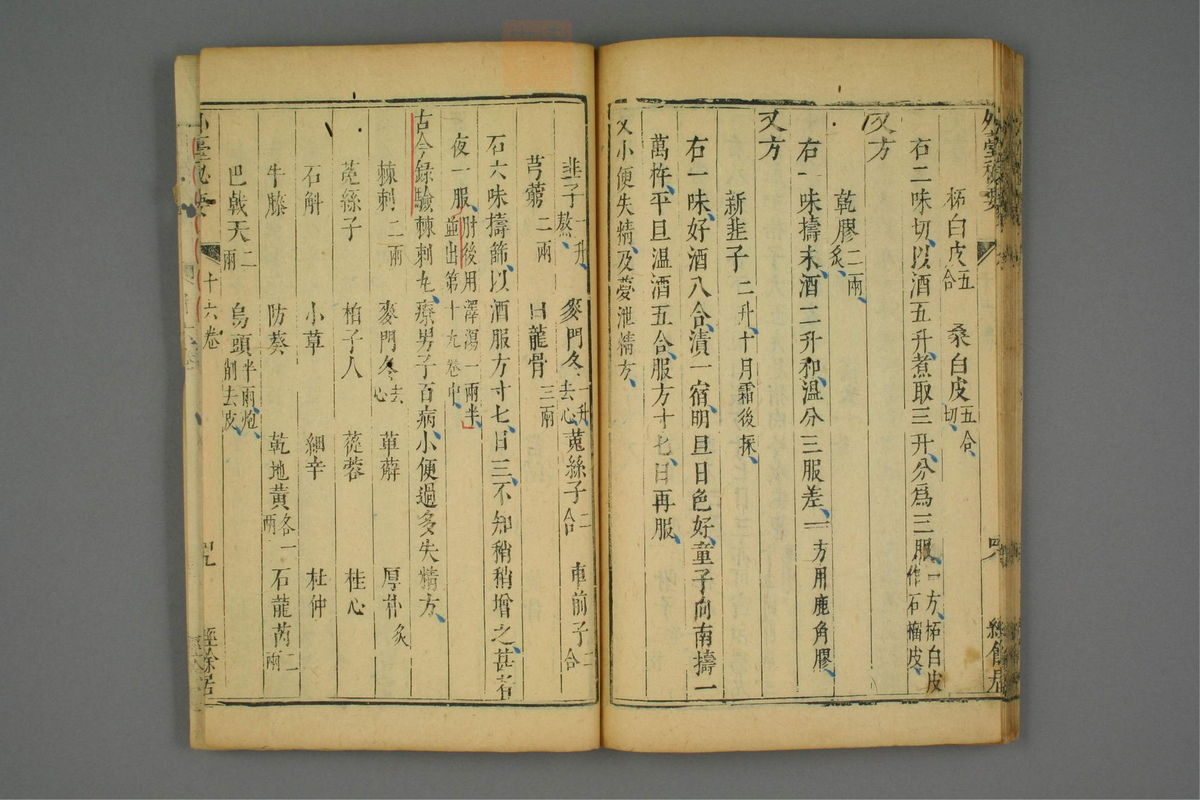 外臺秘要
柘白皮五合 桑白皮五合切
右二味切以酒五升煮取三升分爲三服一方柘白皮作石榴皮
又方
乾膠二兩炙
右一味擣末酒二升和溫分三服差一方用鹿角膠
又方
新韭子二升十月霜後採
右一味好酒八合漬一宿明旦日色好童子向南擣一
萬杵平旦溫酒五合服方寸匕日再服
又小便失精及夢泄精方
韭子一升熬 麥門冬一升去心 菟絲子二合 車前子二合
芎藭二兩 白龍骨三兩
右六味擣篩以酒服方寸匕日三不知稍稍增之甚者
夜一服肘後用澤瀉一兩半並出第十九卷中
古今錄驗棘刺丸療男子百病小便過多失精方
棘刺二兩 麥門冬去心 萆薢 厚朴炙
菟絲子 柏子人 蓯蓉 桂心
石斛 小草 細辛 杜仲
牛膝 防葵 乾地黃各一兩 石龍芮二兩
巴戟天二兩 烏頭半兩炮削去皮
外臺秘要 十六卷 經餘居